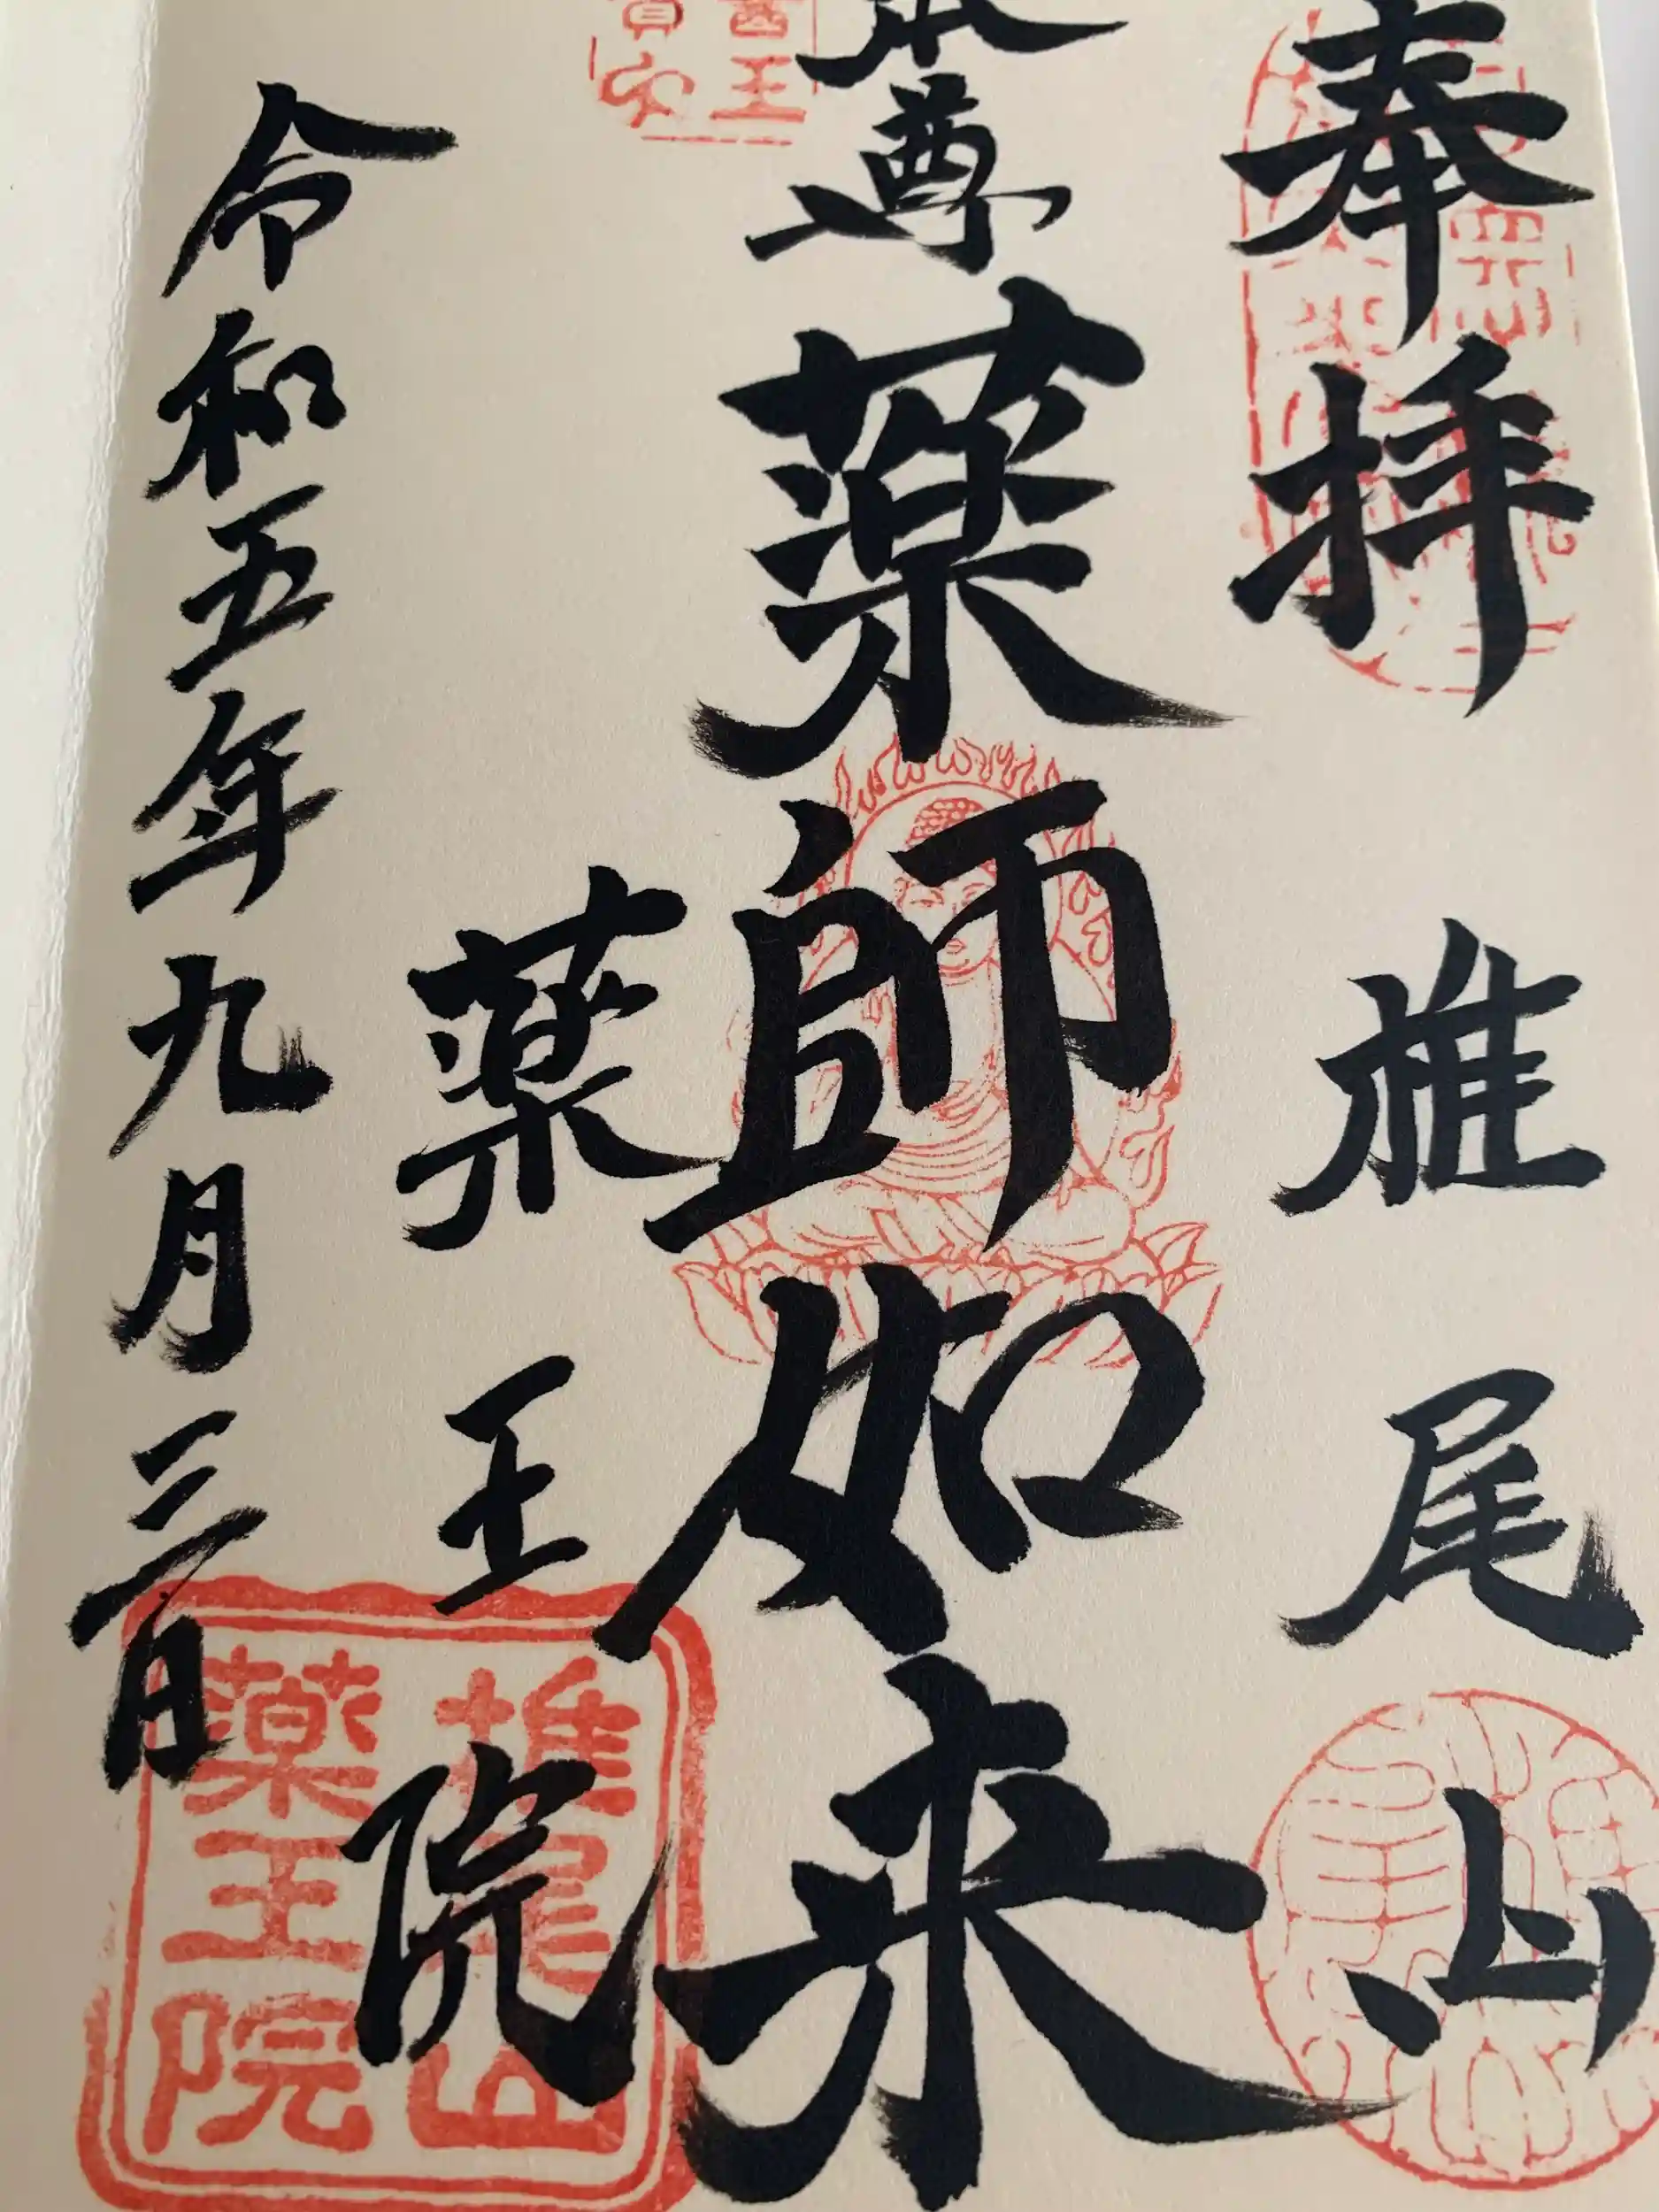 奉拝 椎尾山
本尊 薬師如来
薬王院
令和五年九月三日
椎尾山
薬王院